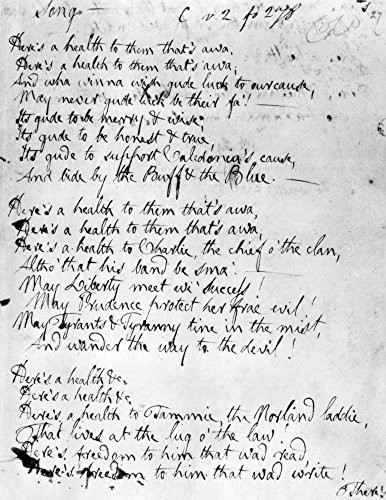 Song —
C v 2 fo 278
Here's a health to them that's awa,
Here's a health to them that's awa;
And wha winna wish gude luck to our cause,
May never gude luck be their fa'! —
Its gude to be merry & wise;
Its gude to be honest & true,
Its gude to support Caledonia's cause,
And bide by the Buff & the Blue. —
Here's a health to them that's awa,
Here's a health to them that's awa;
Here's a health to Charlie, the chief o' the clan,
Altho' that his band be sma' —
May Liberty meet wi' success!
May Prudence protect her frae evil!
May Tyrants & Tyranny tine in the mist,
And wander the way to the devil!
Here's a health &c.
Here's a health &c
Here's a health to Tammie, the Norland laddie,
That lives at the lug o' the law!
Here's freedom to him that wad read,
Here's freedom to him that wad write!
There's